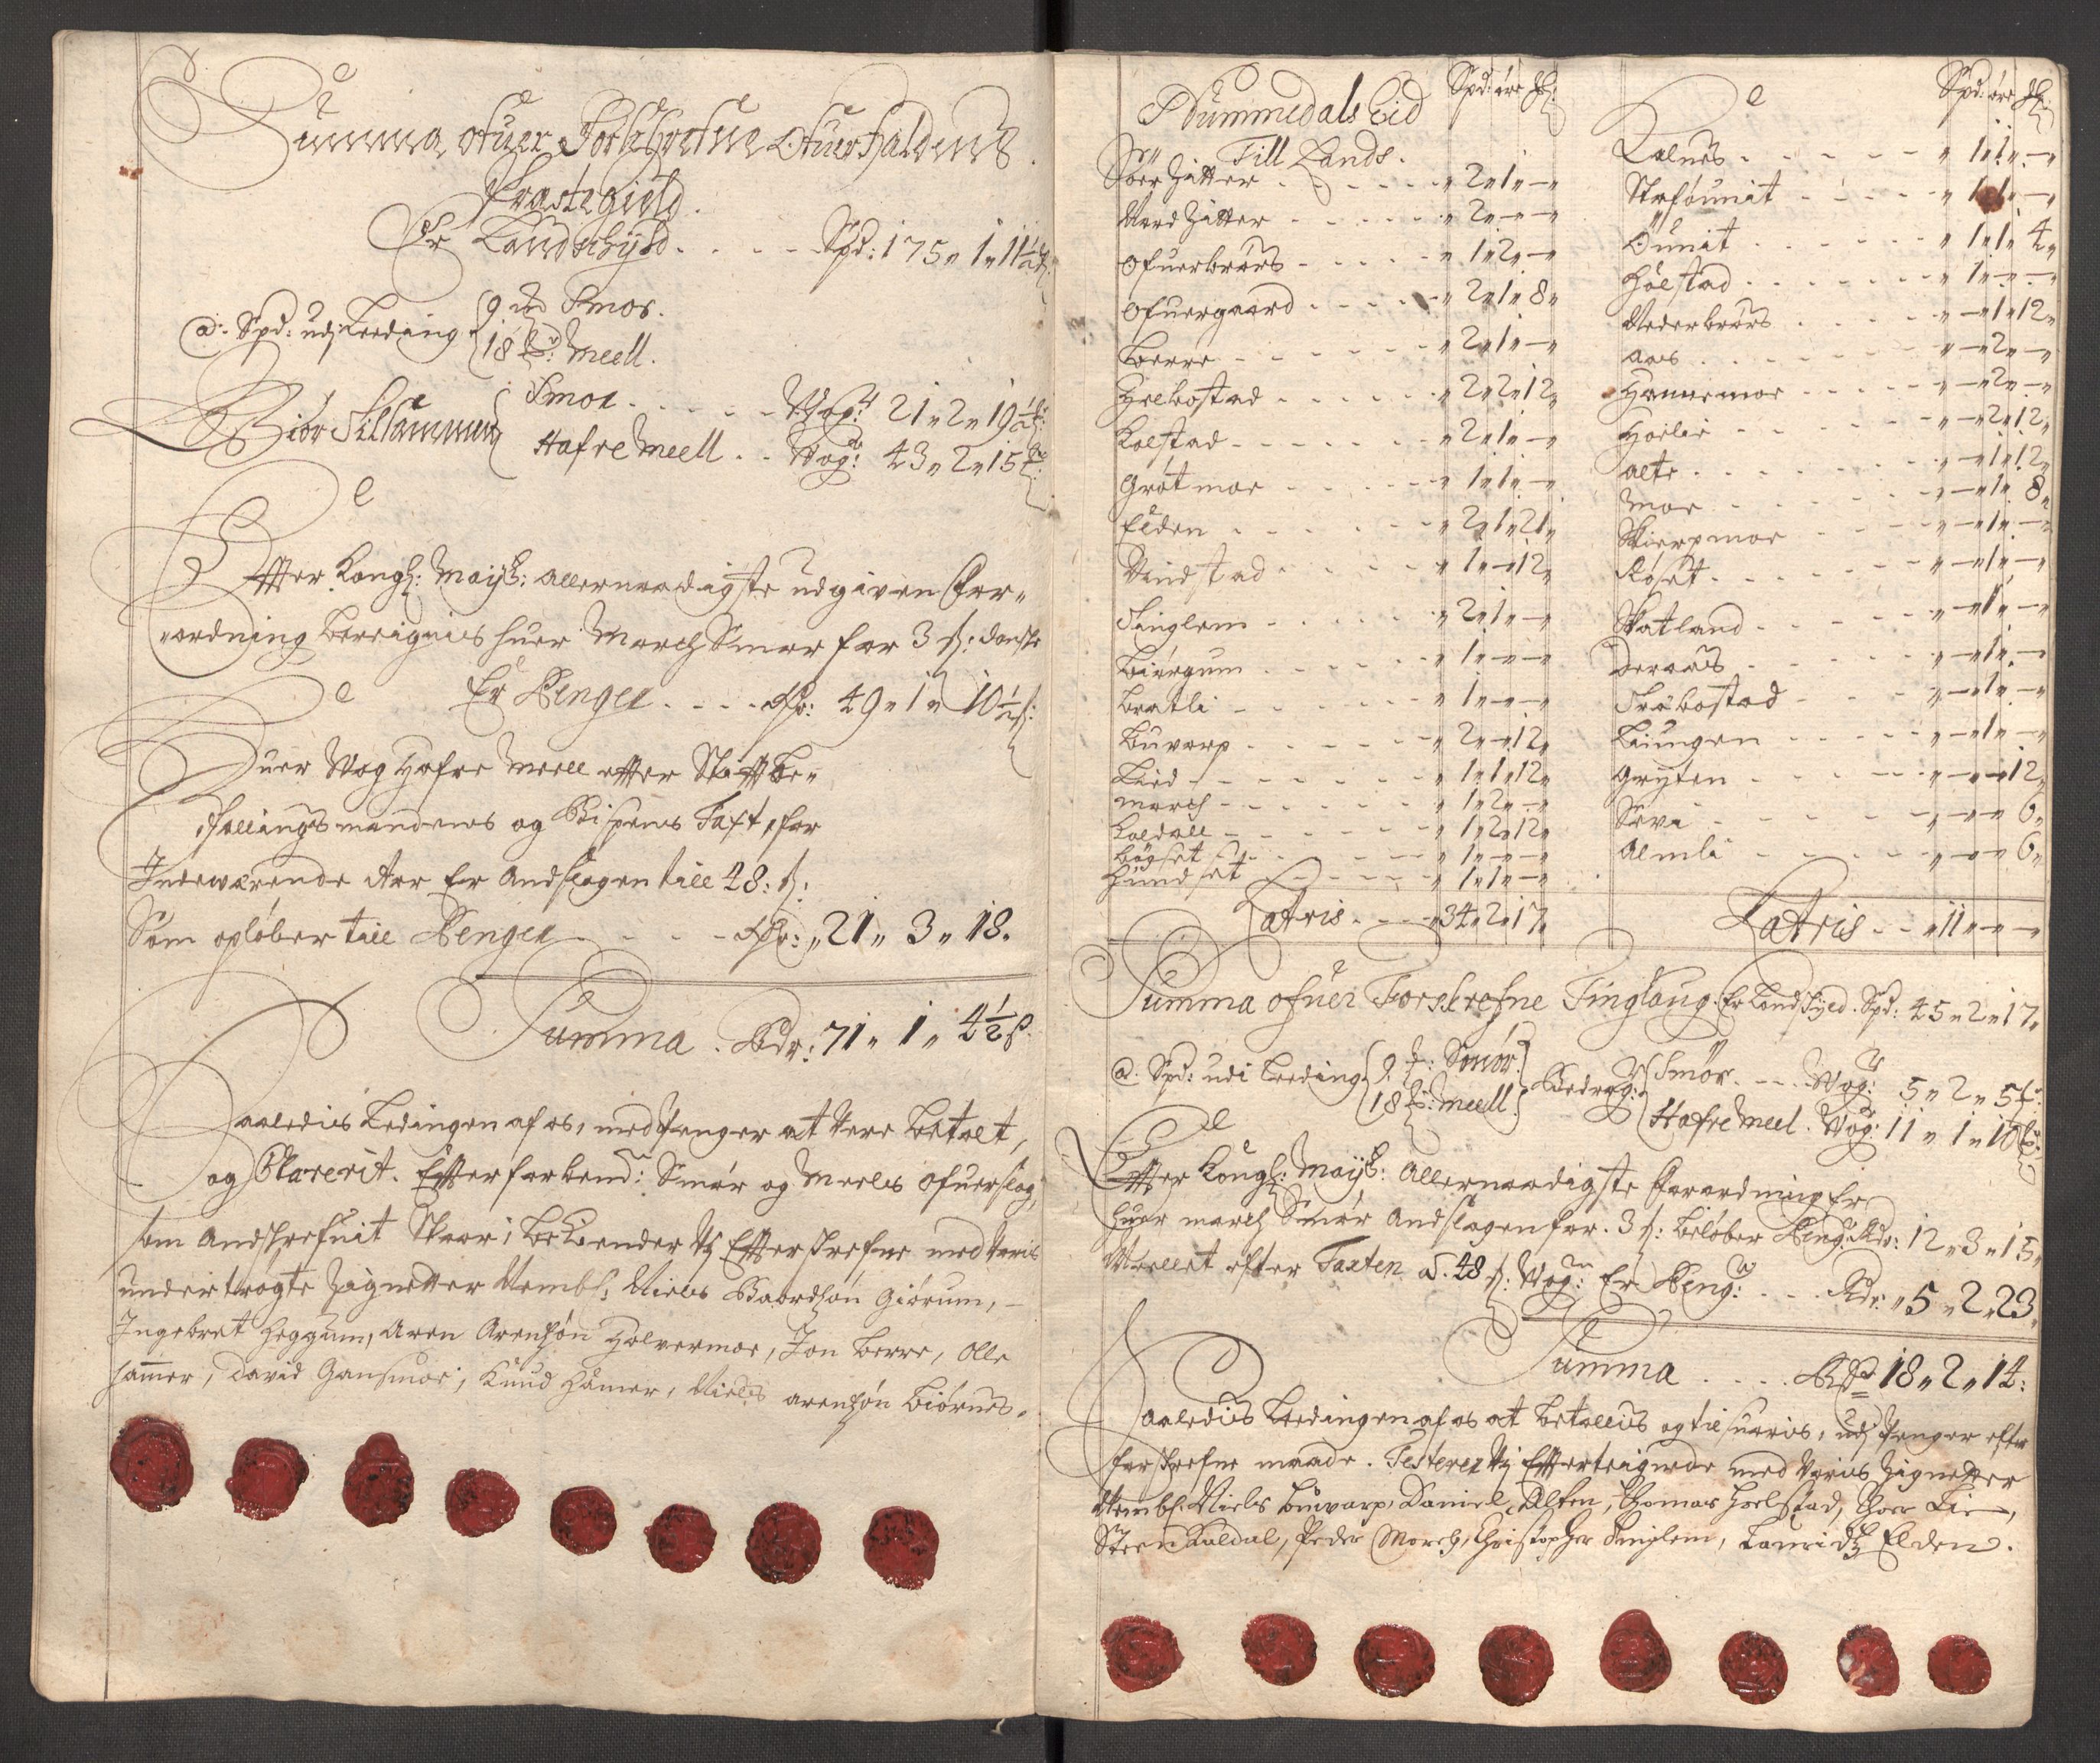 Summa ofuer Forskrefne Ofuerhaldens
Præstegield.
Er Landschyld. . . . Spd: 175 „ 1 „ 11½
a. Spd: udj Leeding 9 Smør.
18 Meell.
Giør Tilsammen Smør . . . . . Wog: 21 „ 2 „ 19½
Hafre Meell . . Wog: 43 „ 2 „ 15
Effter Kongl: Mayts: allernaadigste udgivne for„
„ordning beregnis huer March Smør for 3 s: danske
Er Penger . . . . Rdr: 49 „ 1 „ 10½ s:
Huer Wog Hafre Meell effter Stifftbe„
fallingsmandens og Bispens Taxt, for
Inderwærende Aar Er Andslagen till 48: s:
Som opløber till Penger . . . . Rdr: „ 21 „ 3 „ 18.
Summa . Rdr: 71 „ 1 „ 4½ s.
Saaledis Ledingen af os, med Penger at Vere betalt,
og Clarerit. Effter forbend: Smør og Meelis ofuerslag,
som Andskrefuit staar; bekiender Vj Effterskrefne med Voris
undertrögte Zignetter Nembl: Niels Baardsøn Giörum, –
Ingebret Heggum, Aren Arensøn Holvermoe, Jon Berre, Olle
Hammer, David Gansmoe, Knud Hammer, Niels Arensøn Biörnes.
Nummedals Eid
Spd: öre
Till Lands.
Söer Hitter . . . . „ 2 „ 1 „ —
Nord Hitter . . . . „ 2 „ — „ —
Ofuerbrårs . . . . „ 1 „ 2 „ —
Ofuergaard . . . . „ 2 „ 1 „ 8 „
Berre . . . . „ 2 „ 1 „ —
Helbostad . . . . „ 2 „ 2 „ 12 „
Kolstad . . . . „ 2 „ 1 „ —
Grötmoe . . . . „ 1 „ 1 „ —
Elden . . . . „ 2 „ 1 „ 21 „
Vindstad . . . . „ 1 „ — „ 12 „
Finglem . . . . „ 2 „ 1 „ —
Biörgum . . . . „ 1 „ — „ —
Bratli . . . . „ 1 „ — „ —
Buvarp . . . . „ 2 „ — „ 12 „
Lied . . . . „ 1 „ 1 „ 12 „
March . . . . „ 1 „ 2 „ —
Koldall . . . . „ 1 „ 2 „ 12 „
Bögset . . . . „ 1 „ — „ —
Hundset . . . . „ 1 „ 1 „ —
Latris . . . . „ 34 „ 2 „ 17 „
Spd: öre
Kalnes . . . . „ 1 „ 1 „ —
Strföunit . . . . „ 1 „ 1 „ —
Öunit . . . . „ 1 „ 1 „ 4 „
Hölstad . . . . „ 1 „ — „ —
Nederbrårs . . . . „ — „ 1 „ 12 „
Aas . . . . „ — „ 2 „ —
Hammermoe . . . . „ — „ 2 „ —
Höilie . . . . „ — „ 2 „ 12 „
Alte . . . . „ — „ 1 „ 12 „
Moe . . . . „ — „ 1 „ 8 „
Skierpmoe . . . . „ — „ 1 „ —
Röset . . . . „ — „ 1 „ —
Skatland . . . . „ — „ 1 „ —
Deraas . . . . „ — „ 1 „ —
Fröbostad . . . . „ — „ 1 „ —
Liungen . . . . „ — „ 1 „ —
Gryten . . . . „ — „ — „ 12 „
Seva . . . . „ — „ — „ 6 „
Almli . . . . „ — „ — „ 6 „
Latris . . „ 11 „ — „ —
Summa ofuer Forskrefne Tinglaug Er Landskyld. Spd: 45 „ 2 „ 17 „
a. Spd: udi Leeding 9 : Smör. Bedrog: Smör. . . . Wog: 5 „ 2 „ 5
18 : Meell. Hafre Meel. Wog: 11 „ 1 „ 10
Effter Kongl: Mayts: Allernaadigste forordning Er
huer March Smör Andslagen for. 3 s: beløber Peng: Rdr: 12 „ 3 „ 15 „
Meellet efter Taxten a. 48 s: Wog: Er Peng: . . . Rdr: „ 5 „ 2 „ 23 „
Summa . . . . Rdr 18 „ 2 „ 14:
Saaledis Leedingen af os at betallis og til suaris, udj Penger efter
forskrefne maade. Testerer Vj Effterteignede med Voris Zignetter
Nembl: Niels Buvarp, Daniel Alten, Thomas Hoelstad, Thor Lie,
Steen Kaldal, Peder March, Christopher Finglem, Lauridtz Elden.